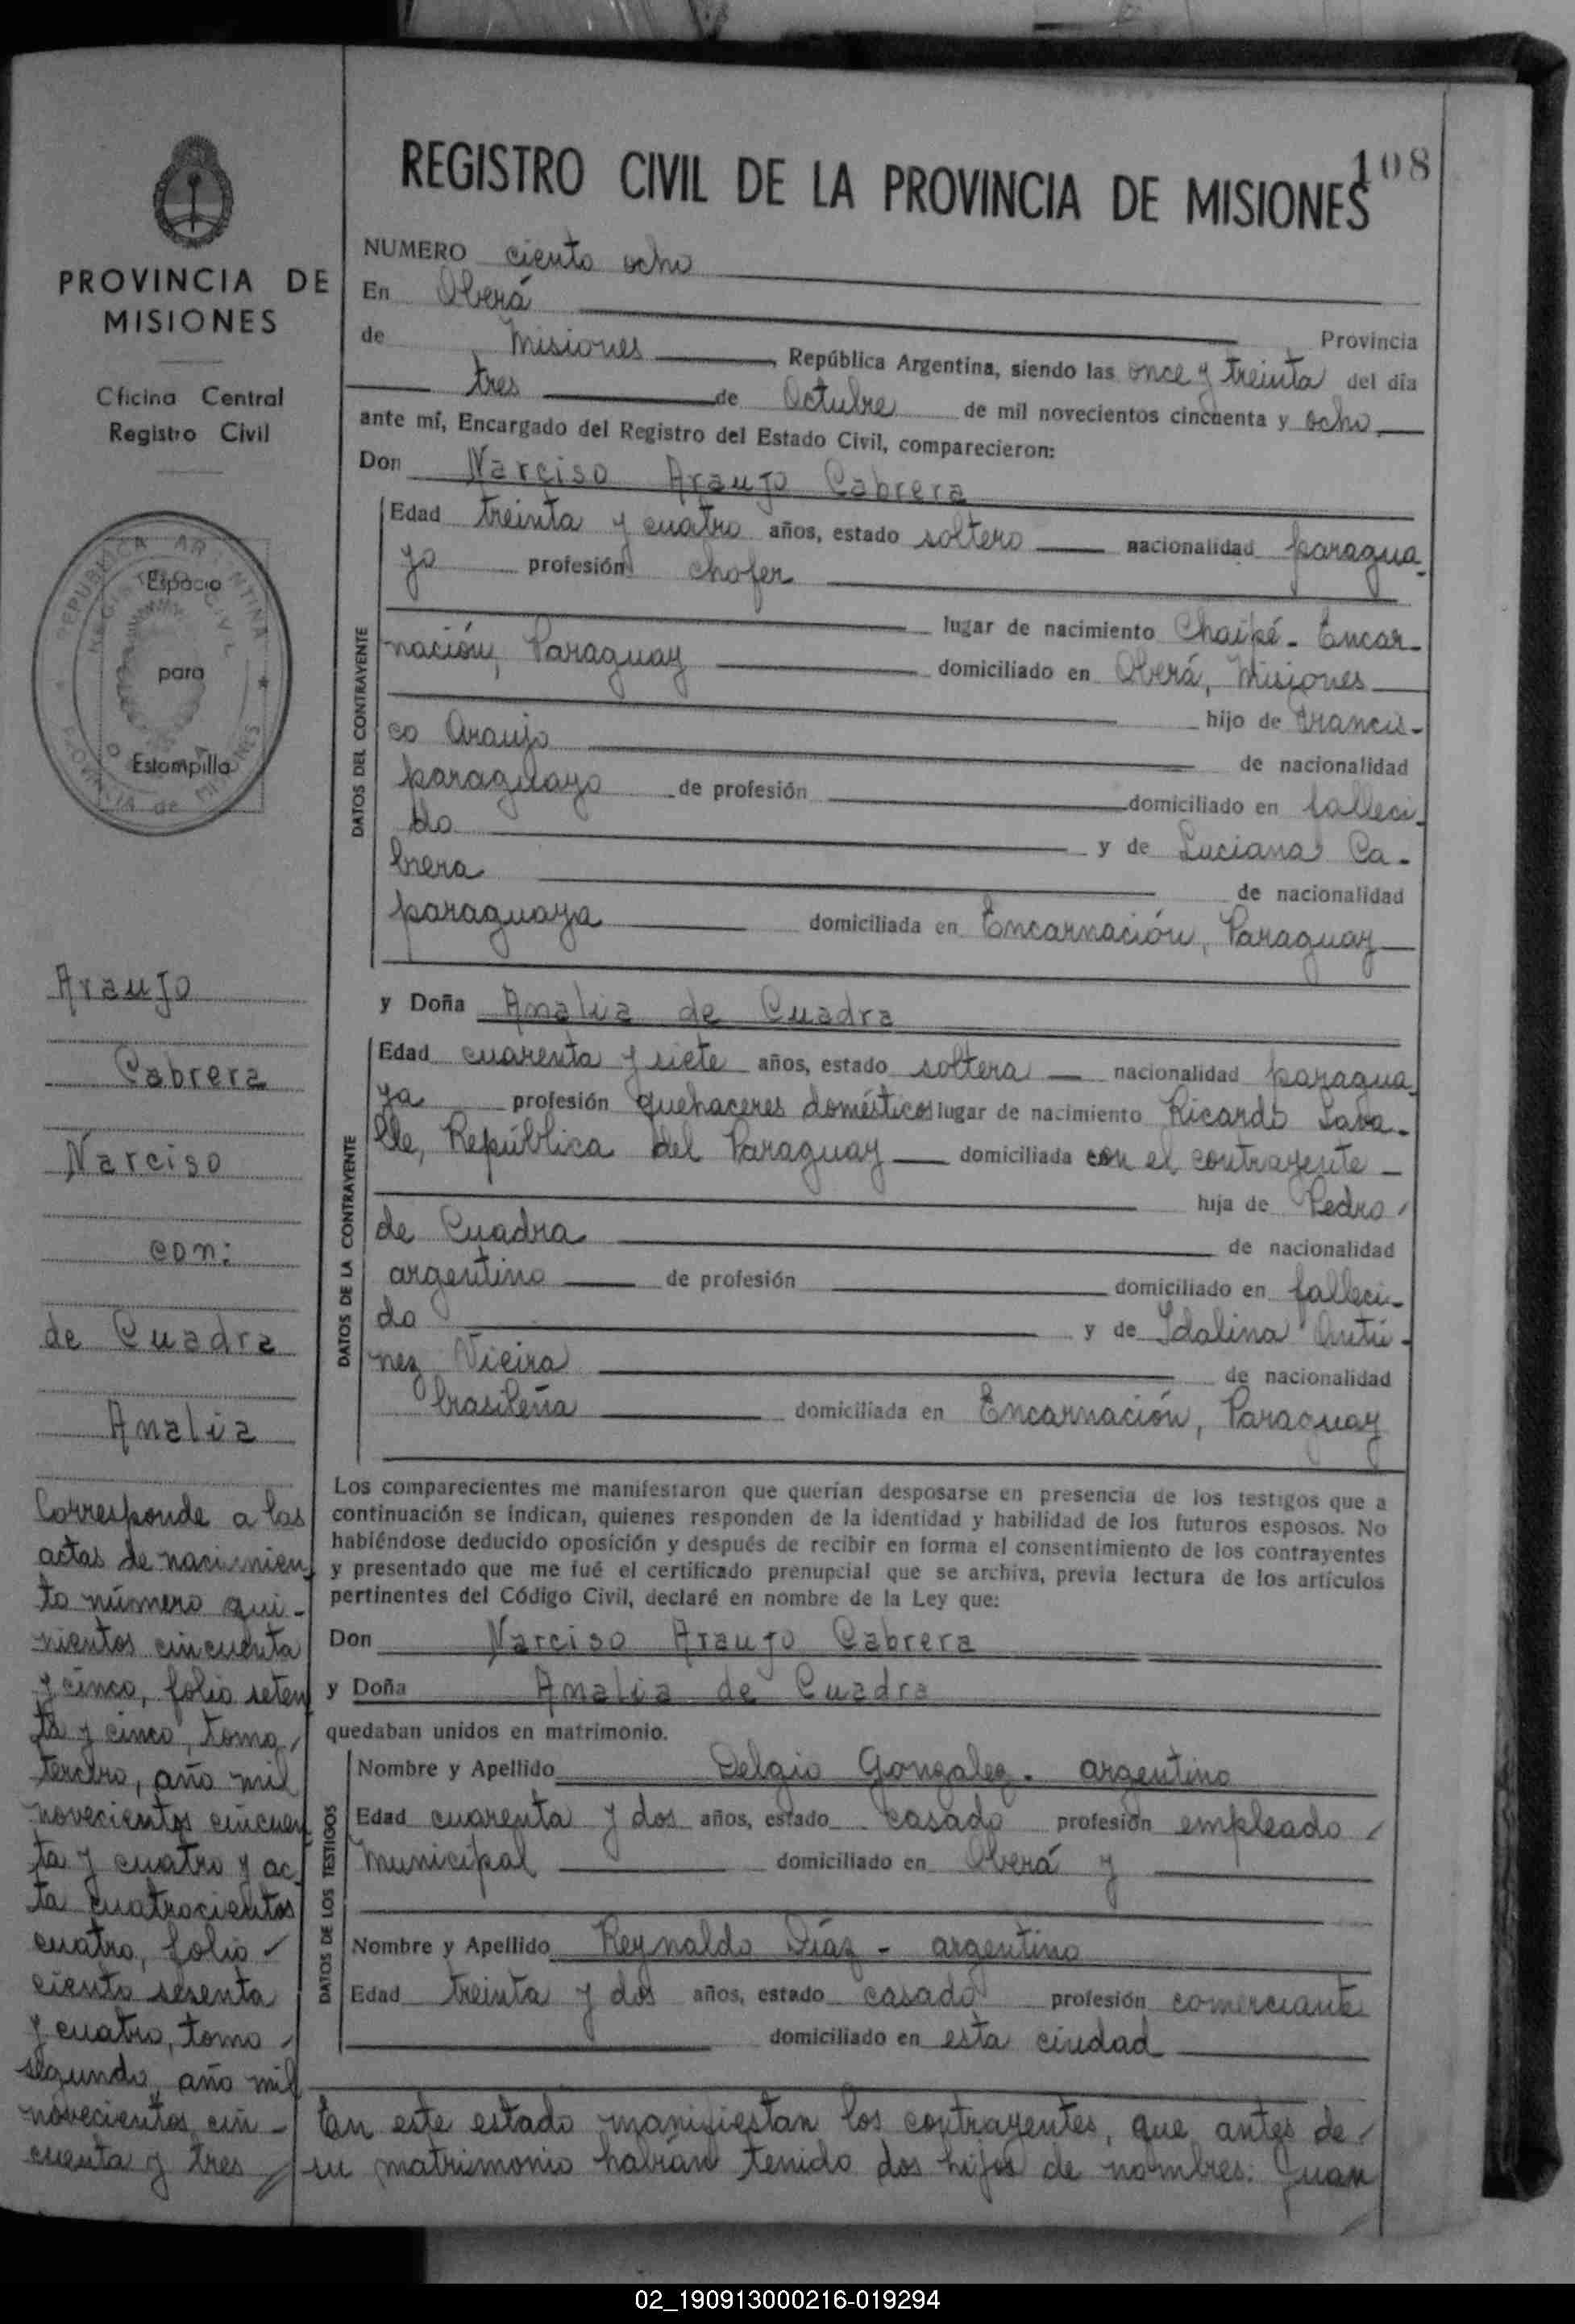 108
REGISTRO CIVIL DE LA PROVINCIA DE MISIONES
PROVINCIA DE
MISIONES
Oficina Central
Registro Civil
REPUBLICA ARGENTINA
REGISTRO CIVIL
PROVINCIA de MISIONES
Espacio
para
Estampilla
Araujo
Cabrera
Narciso
con:
de Cuadra
Analia
Corresponde a las
actas de nacimien
to número qui-
nientos cincuenta
y cinco, folio seten
ta y cinco, tomo
tercero, año mil
novecientos cincuen
ta y cuatro y ac
ta cuatrocientos
cuatro, folio
ciento sesenta
y cuatro, tomo
segundo, año mil
novecientos cin-
cuenta y tres
NUMERO ciento ocho
En Oberá Provincia
de Misiones, República Argentina, siendo las once y treinta del día
tres de Octubre de mil novecientos cincuenta y ocho
ante mí, Encargado del Registro del Estado Civil, comparecieron:
Don Narciso Araujo Cabrera
DATOS DEL CONTRAYENTE
Edad treinta y cuatro años, estado soltero nacionalidad paragua
yo profesión chofer
lugar de nacimiento Chaipé - Encar-
nación, Paraguay domiciliado en Oberá, Misiones
hijo de Francis-
co Araujo de nacionalidad
paraguayo de profesión domiciliado en falleci-
do y de Luciana Ca-
brera de nacionalidad
paraguaya domiciliada en Encarnación, Paraguay
y Doña Analia de Cuadra
DATOS DE LA CONTRAYENTE
Edad cuarenta y siete años, estado soltera nacionalidad paragua
ya profesión quehaceres domésticos lugar de nacimiento Ricardo
República del Paraguay domiciliada con el contrayente
hija de Pedro
de Cuadra de nacionalidad
argentino de profesión domiciliado en falleci-
do y de Idalina Antú-
nez Vieira de nacionalidad
brasileña domiciliada en Encarnación, Paraguay
Los comparecientes me manifestaron que querían desposarse en presencia de los testigos que a
continuación se indican, quienes responden de la identidad y habilidad de los futuros esposos. No
habiéndose deducido oposición y después de recibir en forma el consentimiento de los contrayentes
y presentado que me fué el certificado prenupcial que se archiva, previa lectura de los artículos
pertinentes del Código Civil, declaré en nombre de la Ley que:
Don Narciso Araujo Cabrera
y Doña Analia de Cuadra
quedaban unidos en matrimonio.
DATOS DE LOS TESTIGOS
Nombre y Apellido Delgio Gonzalez - argentino
Edad cuarenta y dos años, estado casado profesión empleado
municipal domiciliado en Oberá y
Nombre y Apellido Reynaldo Díaz - argentino
Edad treinta y dos años, estado casado profesión comerciante
domiciliado en esta ciudad
En este estado manifiestan los contrayentes, que antes de
su matrimonio habían tenido dos hijos de nombres: Juan
02_190913000216-019294